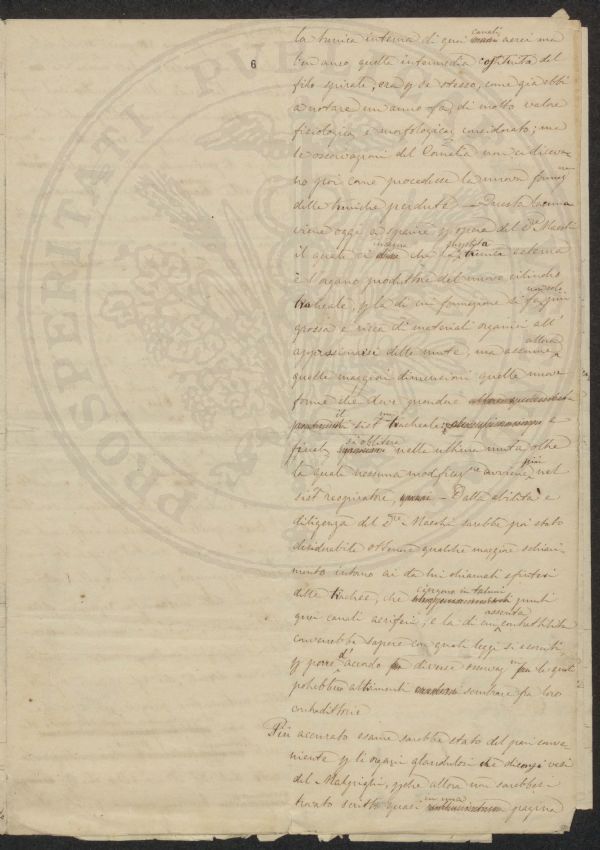 6
la tunica interna di quei canali aerei ma
ben anco quella intermedia costituita del
filo spirale; cosa per se stesso, come già ebbi
a notare un anno fa, di molto valore
fisiologico e morfologico considerato; ma
le osservazioni del Cornalia non ci diceva
no poi come procedesse la nuova formaz.ne
delle tuniche perdute — Questa lacuna
viene oggi a sparire per opera del D.re Maestri
il quale ci insegna che la tunica esterna
è l'organo produttore del nuovo cilindro
tracheale, per la di cui formazione si fa più
grossa e ricca di materiali organici all'
approssimarsi delle mute, ma assume allora
quelle maggiori dimensioni quelle nuove
forme che deve prendere
il sist.ma tracheale; e
si oblitera nella ultima muta oltre
la quale nessuna modificaz.ne avviene più nel
sist. respiratorio, — Dalla abilità e
diligenza del D.re Maestri sarebbe poi stato
desiderabile ottenere qualche maggiore schiari-
mento intorno ai da lui chiamati
delle trachee, che in taluni punti
quei canali aeriferi; e la di cui assenza
converrebbe sapere con quali leggi si
per porre d'accordo diverse osservaz.ni le quali
potrebbero altrimenti sembrare fra loro
contradittorie
Più accurato esame sarebbe stato del pari conve-
niente per li organi glandulosi che diconsi vasi
del Malpighi, perché allora non sarebbesi
trovato scritto quasi in una pagina
PROSPERITATI PUBLICAE